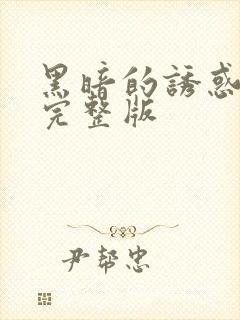 黑暗的誘惑
完整版
尹幫忠